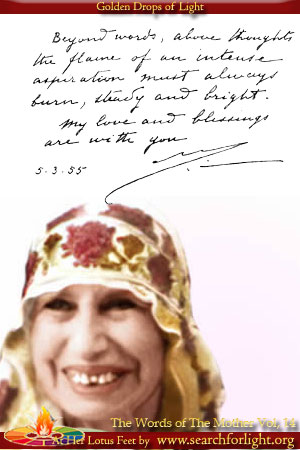 Golden Drops of Light
Beyond words, above thoughts
the flame of an intense
aspiration must always
burn, steady and bright.
My love and blessings
are with you
5.3.55
The Words of The Mother Vol. 14
At Her Lotus Feet by www.searchforlight.org